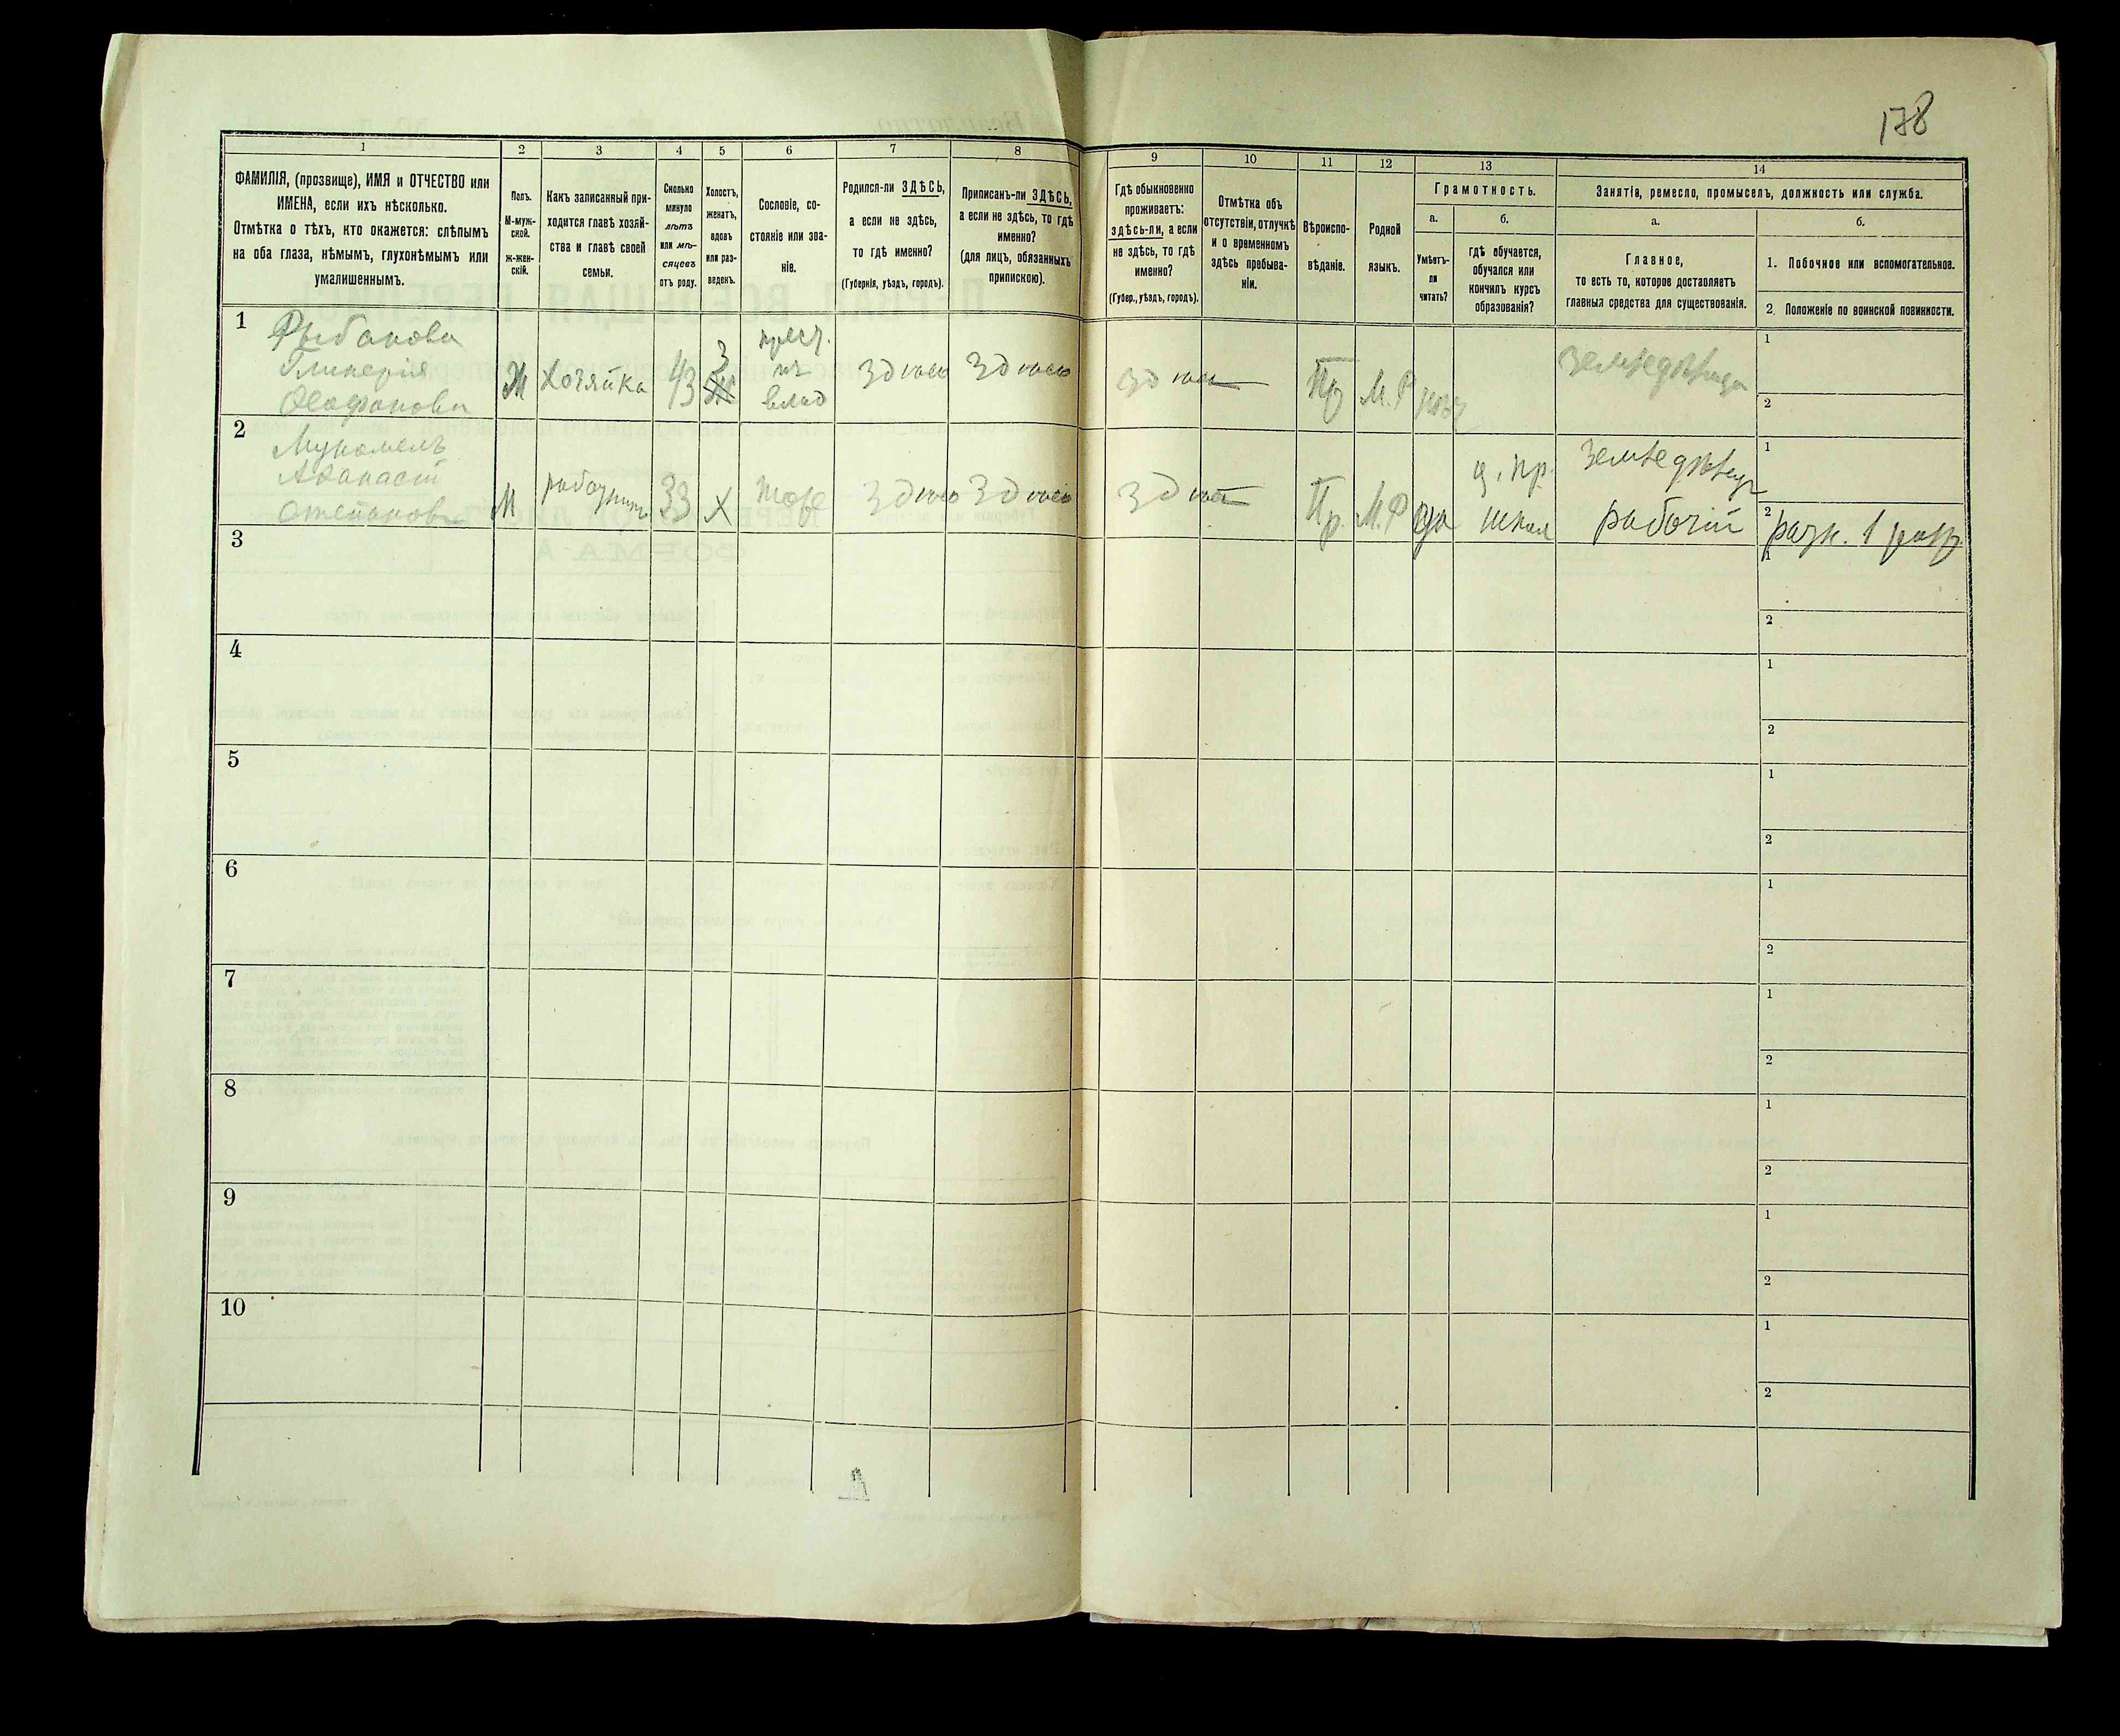 178
1 2 3 4 5 6 7 8 9 10 11 12 13 14
ФАМИЛІЯ, (прозвище), ИМЯ и ОТЧЕСТВО или
ИМЕНА, если ихъ нѣсколько.
Отмѣтка о тѣхъ, кто окажется: слѣпымъ
на оба глаза, нѣмымъ, глухонѣмымъ или
умалишеннымъ.
Полъ.
М-муж-
ской.
ж-жен-
скій.
Какъ записанный при-
ходится главѣ хозяй-
ства и главѣ своей
семьи.
Сколько
минуло
лѣтъ
или мѣ-
сяцевъ
отъ роду.
Холостъ,
женатъ,
вдовъ
или раз-
веденъ.
Сословіе, со-
стояніе или зва-
ніе.
Родился-ли ЗДѢСЬ,
а если не здѣсь,
то гдѣ именно?
(Губернія, уѣздъ, городъ).
Приписанъ-ли ЗДѢСЬ,
а если не здѣсь, то гдѣ
именно?
(для лицъ, обязанныхъ
припискою).
Гдѣ обыкновенно
проживаетъ:
здѣсь-ли, а если
не здѣсь, то гдѣ
именно?
(Губер., уѣздъ, городъ).
Отмѣтка объ
отсутствіи, отлучкѣ
и о временномъ
здѣсь пребыва-
ніи.
Вѣроиспо-
вѣданіе.
Родной
языкъ.
Грамотность.
а.
Умѣетъ-
ли
читать?
б.
гдѣ обучается,
обучался или
кончилъ курсъ
образованія?
Занятія, ремесло, промыселъ, должность или служба.
а.
Главное,
то есть то, которое доставляетъ
главныя средства для существованія.
б.
1. Побочное или вспомогательное.
2. Положеніе по воинской повинности.
1
Ж Хозяйка 43 З
влад
М.Р
1
2
2
М работникъ 33 Х тоже
Пр. М.Р да
ц. пр.
школ
рабочій
1
2
3
1
2
4
1
2
5
1
2
6
1
2
7
1
2
8
1
2
9
1
2
10
1
2